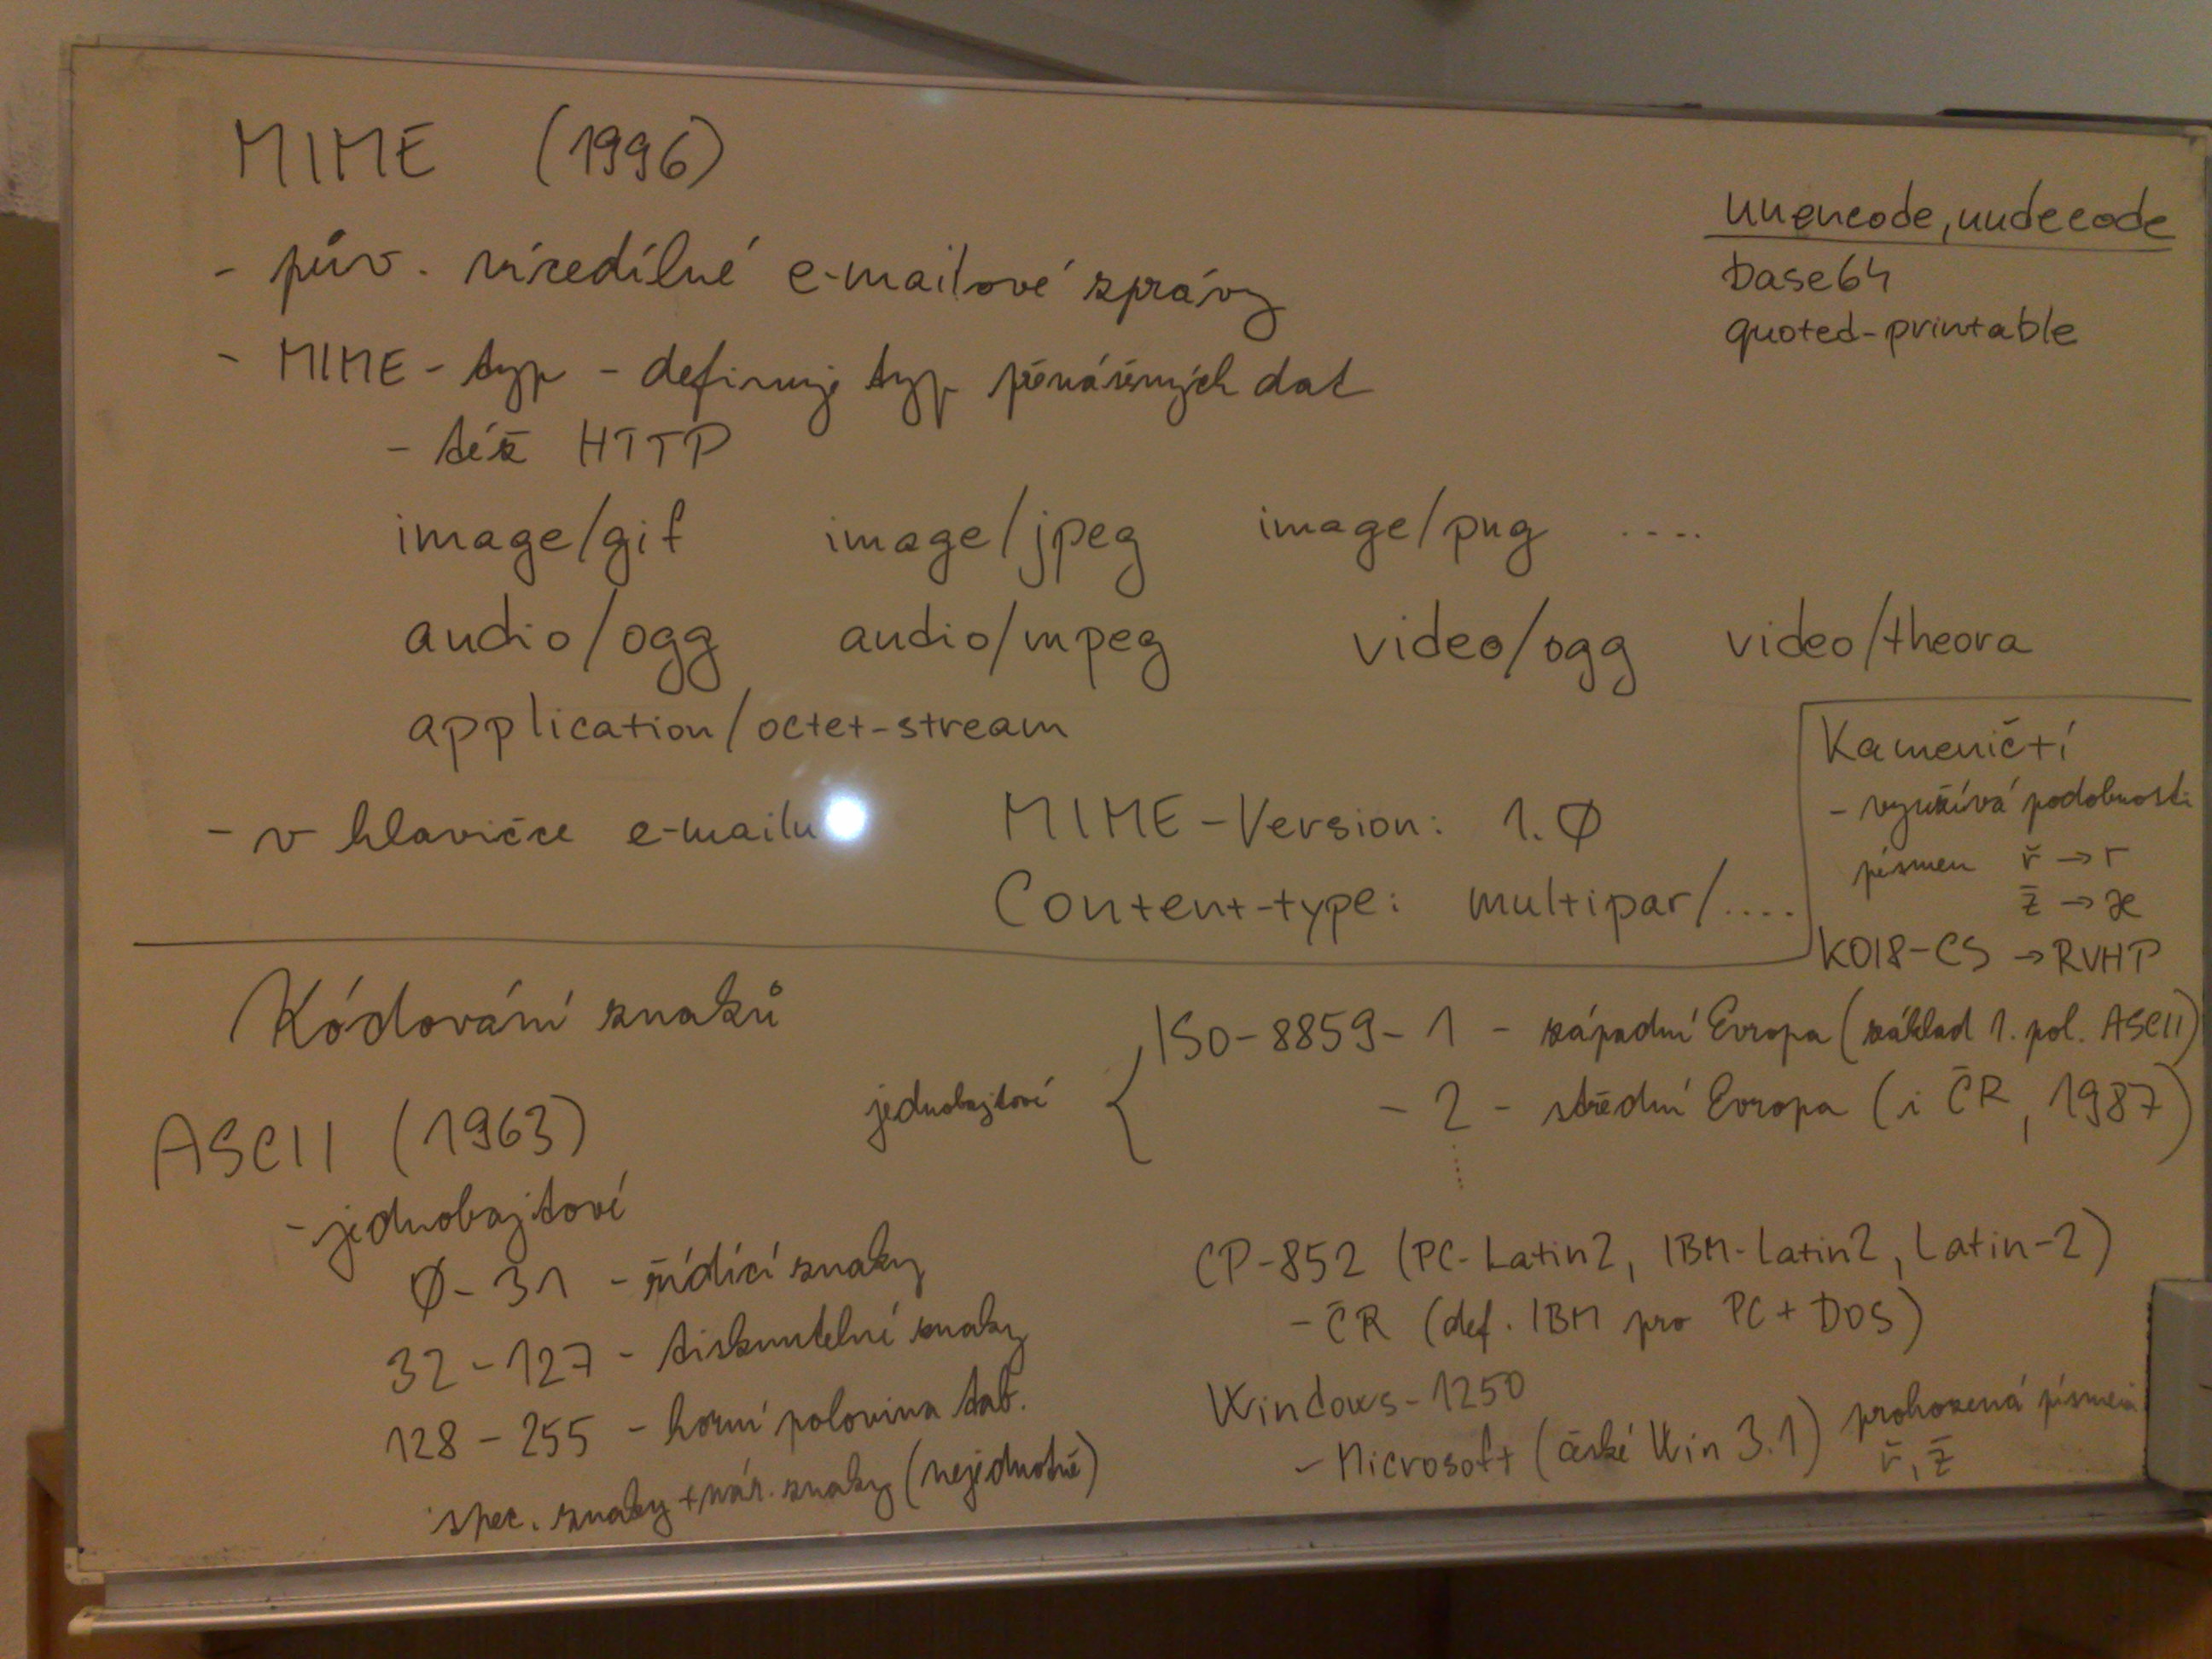 MIME (1996)
- pův. vícedílné e-mailové zprávy
- MIME - typ - definuje typ přenášených dat
- též HTTP
image/gif image/jpeg image/png ....
audio/ogg audio/mpeg video/ogg video/theora
application/octet-stream
- v hlavičce e-mailu MIME-Version: 1.0
Content-type: multipar/....
uuencode, uudecode
base64
quoted-printable
Kameničtí
- využívá podobnosti
písmen ř → r
ž → z
KOI8-CS → RVHP
Kódování znaků
ASCII (1963)
- jednobajtové
0 - 31 - řídící znaky
32 - 127 - tisknutelné znaky
128 - 255 - horní polovina tab.
spec. znaky + nár. znaky (nejednotné)
jednobajtové { ISO-8859-1 - západní Evropa (základ 1. pol. ASCII)
- 2 - střední Evropa (i ČR, 1987)
CP-852 (PC-Latin2, IBM-Latin2, Latin-2)
- ČR (def. IBM pro PC + DOS)
Windows-1250
- Microsoft (české Win 3.1) prohozená písmena
ř, ž